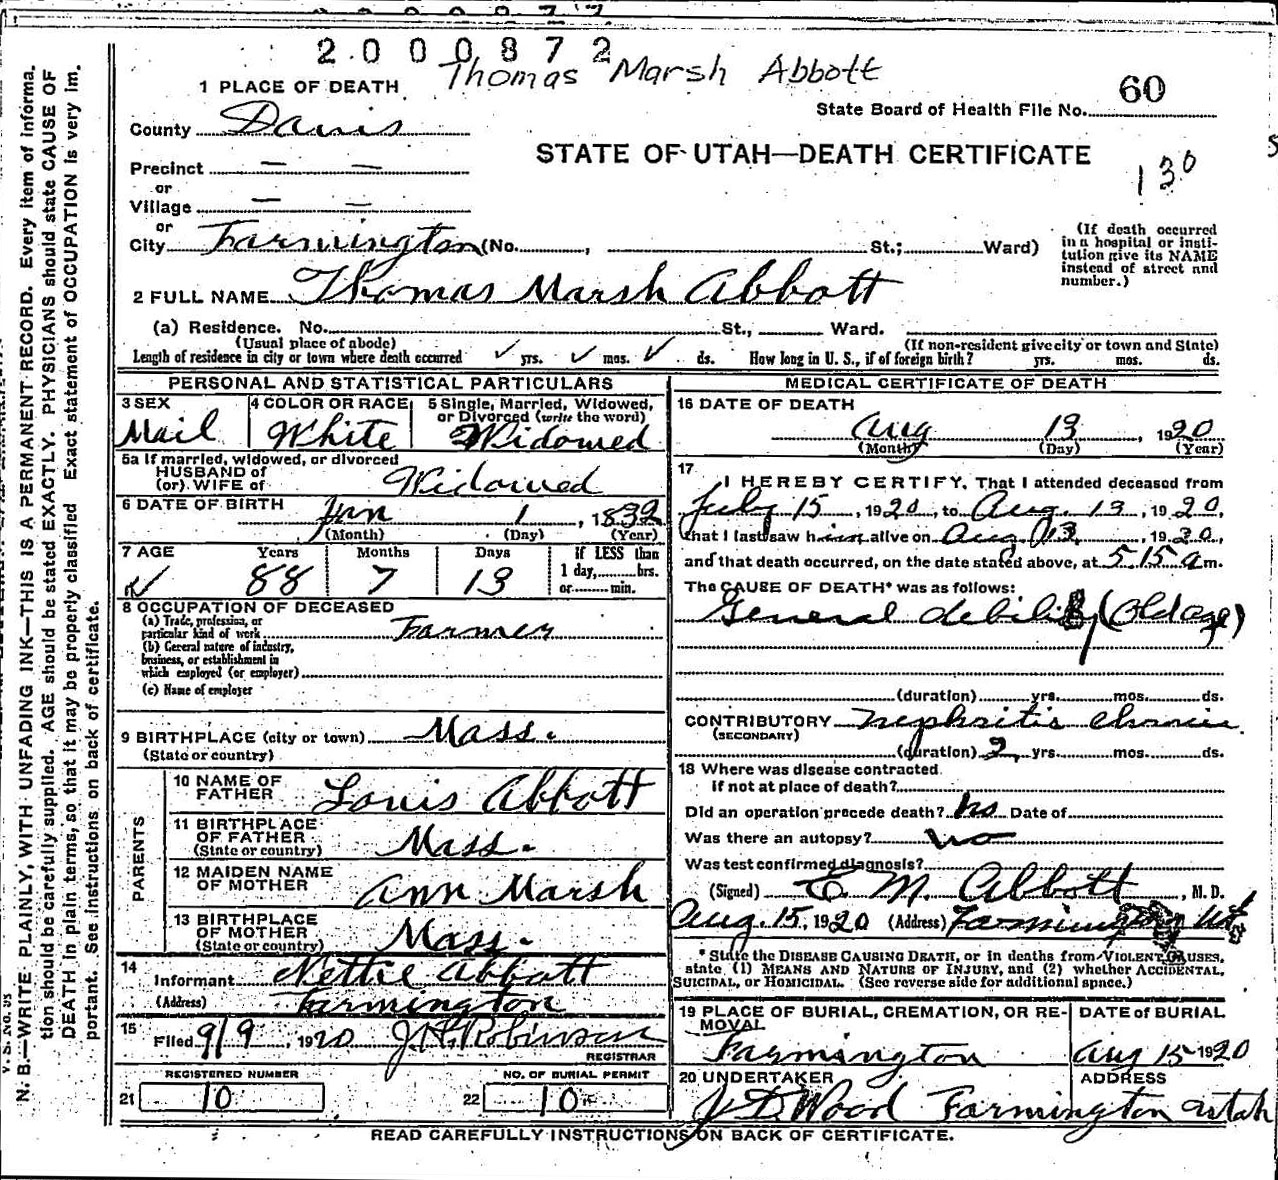 2000872
Thomas Marsh Abbott
1 PLACE OF DEATH
State Board of Health File No. 60
County Davis
STATE OF UTAH—DEATH CERTIFICATE
130
Precinct — —
or
Village — —
or
City Farmington (No. , St.; Ward)
(If death occurred in a hospital or institution give its NAME instead of street and number.)
2 FULL NAME Thomas Marsh Abbott
(a) Residence. No. St., Ward.
(Usual place of abode) (If non-resident give city or town and State)
Length of residence in city or town where death occurred ✓ yrs. ✓ mos. ✓ ds. How long in U. S., if of foreign birth? yrs. mos. ds.
PERSONAL AND STATISTICAL PARTICULARS
3 SEX Mail
4 COLOR OR RACE White
5 Single, Married, Widowed, or Divorced (write the word) Widowed
5a If married, widowed, or divorced
HUSBAND of
(or) WIFE of Widowed
6 DATE OF BIRTH Jan 1, 1832
(Month) (Day) (Year)
7 AGE Years Months Days If LESS than
88 7 13 1 day, hrs.
or min.
8 OCCUPATION OF DECEASED
(a) Trade, profession, or
particular kind of work Farmer
(b) General nature of industry,
business, or establishment in
which employed (or employer)
(c) Name of employer
9 BIRTHPLACE (city or town) Mass.
(State or country)
PARENTS
10 NAME OF FATHER Louis Abbott
11 BIRTHPLACE OF FATHER Mass.
(State or country)
12 MAIDEN NAME OF MOTHER Ann Marsh
13 BIRTHPLACE OF MOTHER Mass.
(State or country)
14 Informant Nettie Abbott
(Address) Farmington
15 Filed 9/9, 1920 J.H. Robinson
REGISTRAR
REGISTERED NUMBER NO. OF BURIAL PERMIT
21 10 22 10
MEDICAL CERTIFICATE OF DEATH
16 DATE OF DEATH
Aug 13, 1920
(Month) (Day) (Year)
17
I HEREBY CERTIFY, That I attended deceased from
July 15, 1920, to Aug. 13, 1920,
that I last saw him alive on Aug 13, 1920,
and that death occurred, on the date stated above, at 5.15 a m.
The CAUSE OF DEATH* was as follows:
General debility (Old age)
(duration) yrs. mos. ds.
CONTRIBUTORY Nephritis chronic
(SECONDARY)
(duration) 2 yrs. mos. ds.
18 Where was disease contracted
if not at place of death?
Did an operation precede death? no Date of
Was there an autopsy? no
Was test confirmed diagnosis?
(Signed) E M. Abbott, M. D.
Aug. 15, 1920 (Address) Farmington Ut
* State the DISEASE CAUSING DEATH, or in deaths from VIOLENT CAUSES,
state (1) MEANS AND NATURE OF INJURY, and (2) whether ACCIDENTAL,
SUICIDAL, or HOMICIDAL. (See reverse side for additional space.)
19 PLACE OF BURIAL, CREMATION, OR REMOVAL DATE of BURIAL
Farmington Aug 15 1920
20 UNDERTAKER ADDRESS
J D Wood Farmington Utah
READ CAREFULLY INSTRUCTIONS ON BACK OF CERTIFICATE.
V. S. No.
N. B.—WRITE PLAINLY, WITH UNFADING INK—THIS IS A PERMANENT RECORD. Every item of informa.
tion should be carefully supplied. AGE should be stated EXACTLY. PHYSICIANS should state CAUSE OF
DEATH in plain terms, so that it may be properly classified Exact statement of OCCUPATION is very im.
portant. See instructions on back of certificate.